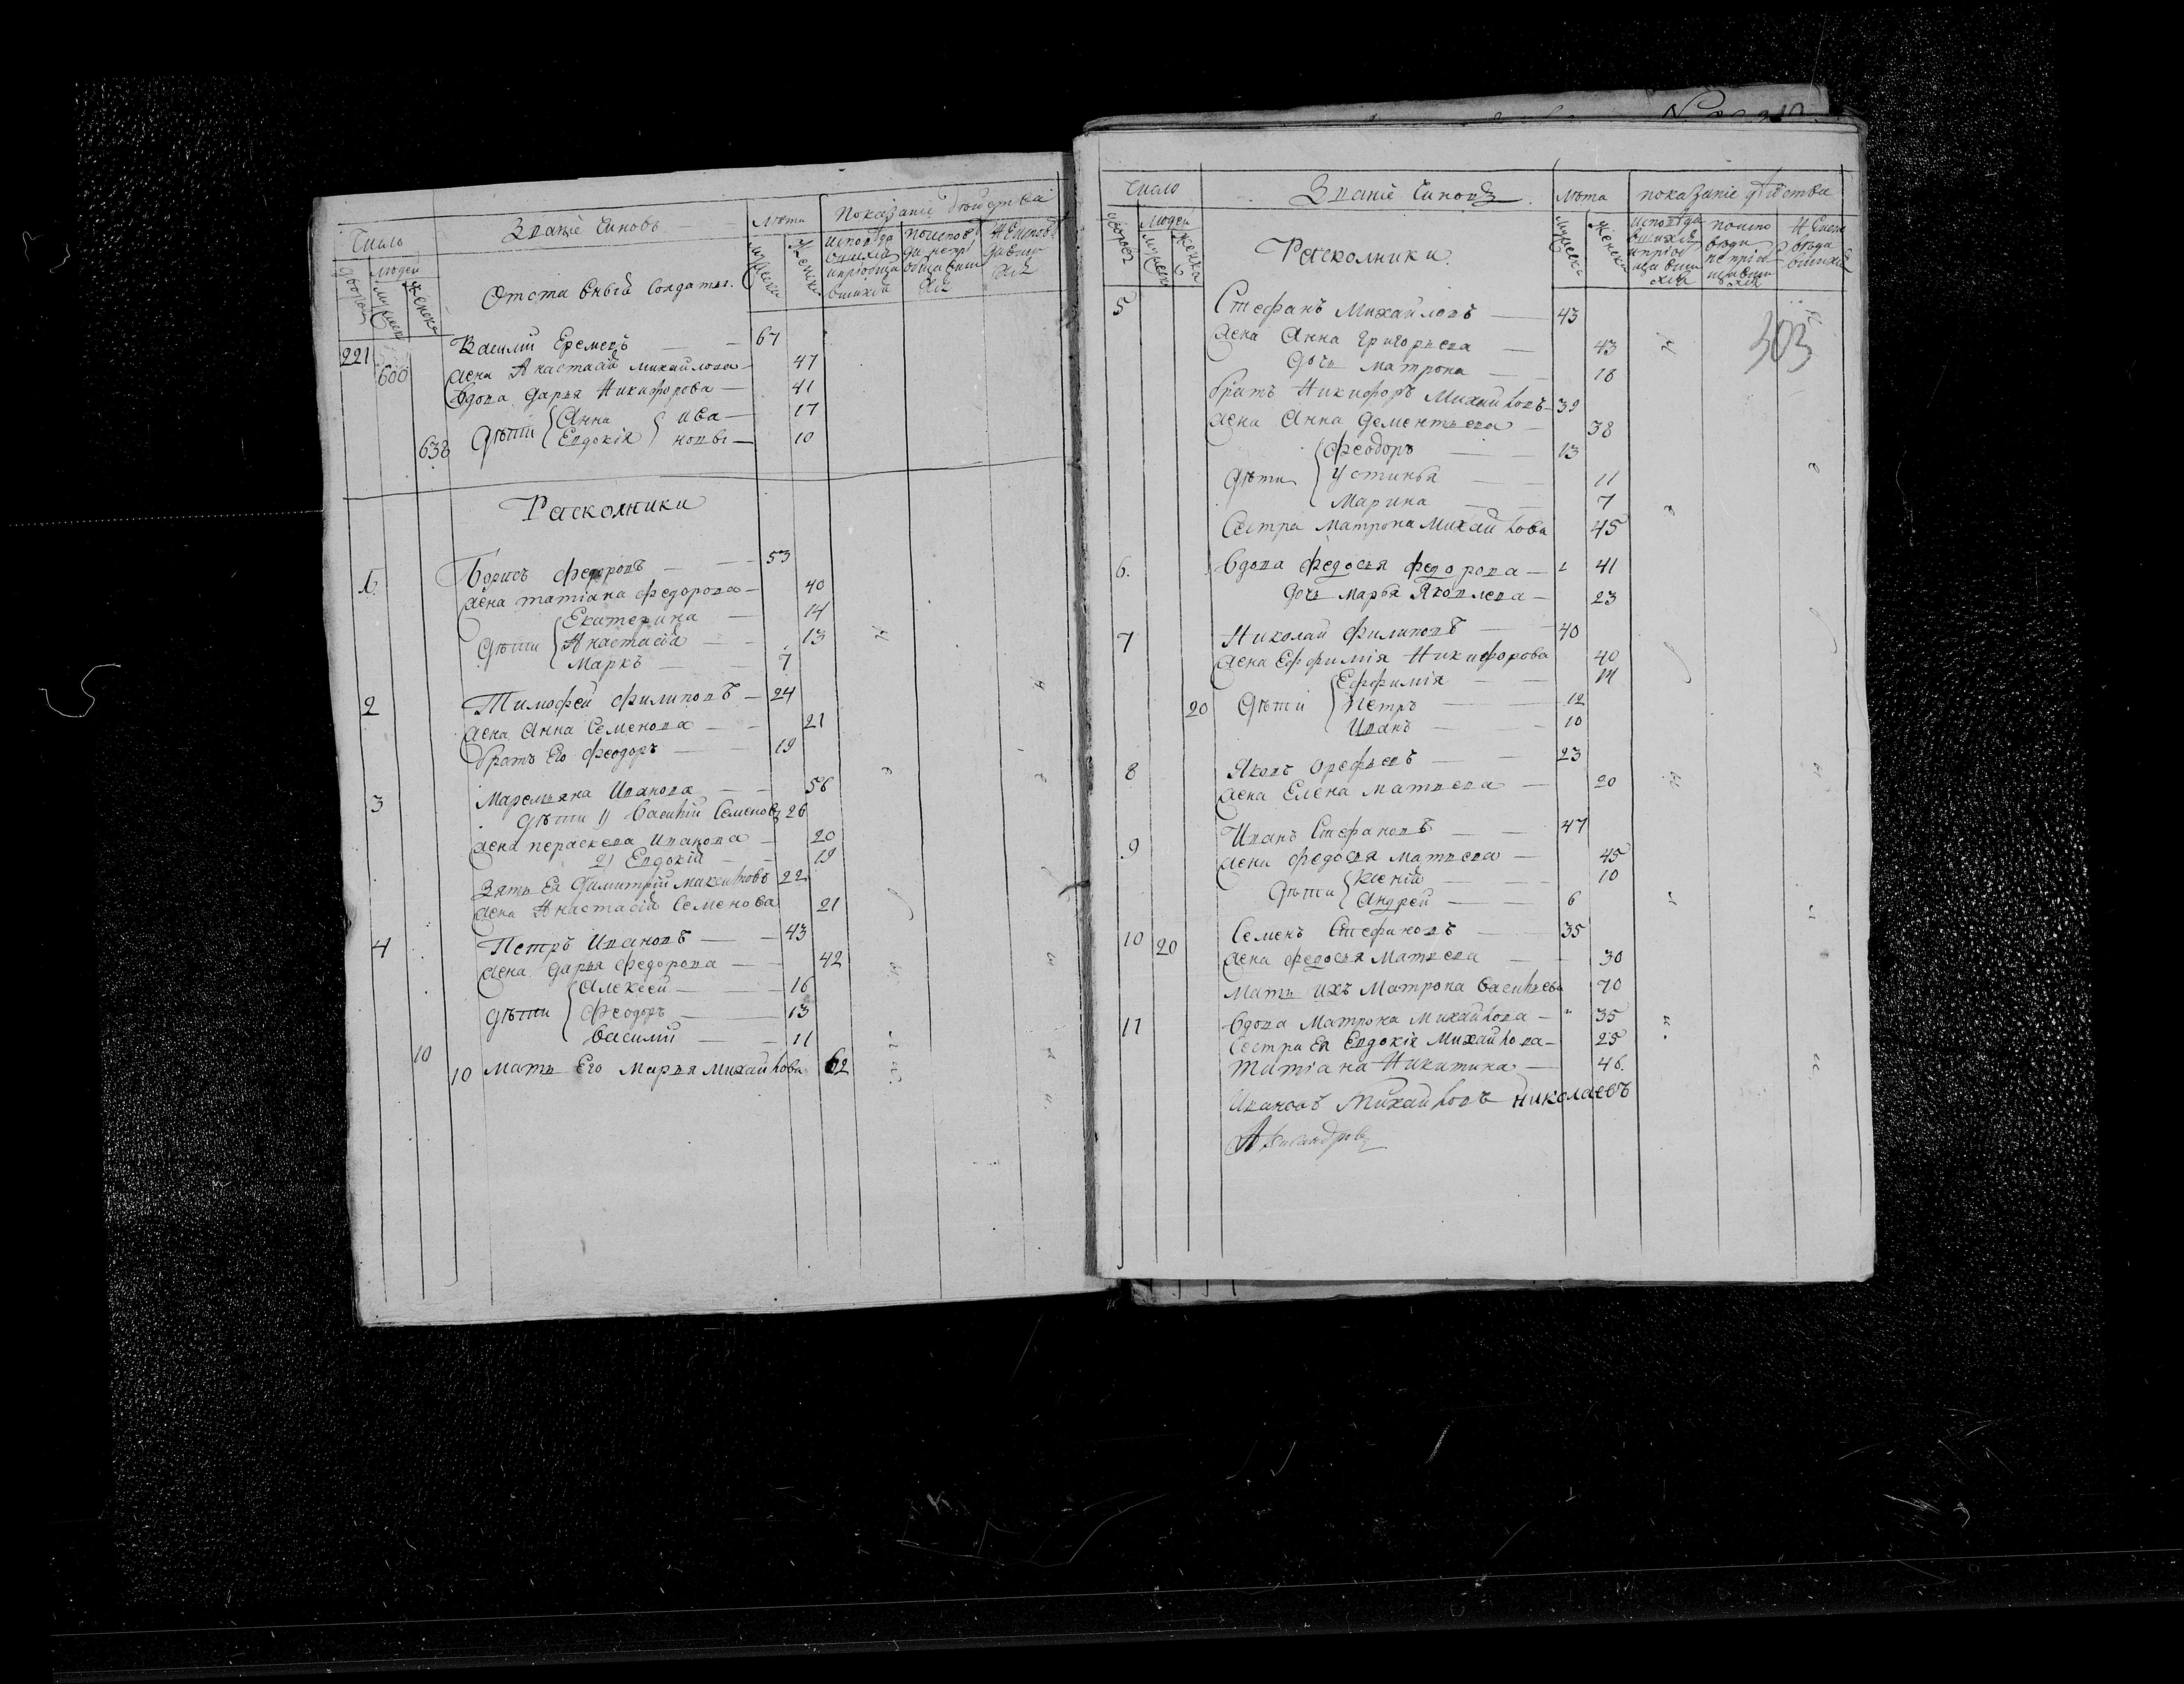 Число Званіе Чиновъ Лѣта Показаніе дѣйства
дворовъ людей мужеска женска
Отставный Солдаты.
мужеска женска
221 600 Василій Еремеевъ 67
жена Анастасія Михайлова 47
вдова Дарья Никифорова 41
638 дѣти Анна Ива 17
Евдокія новы 10
Расколники
1 Борисъ Федоровъ 53
жена Татіана Федорова 40
Екатерина 14
дѣти Анастасія 13
Маркъ 7
2 Тимофей Филиповъ 24
жена Анна Семенова 21
братъ Его Феодоръ 19
3 Маремьяна Иванова 56
дѣти 1) Василій Семеновъ 26
жена Пераскева Иванова 20
2) Евдокія 19
Зять Ея Димитрій Максимовъ 22
жена Анастасія Семенова 21
4 Петръ Ивановъ 43
жена Дарья Федорова 42
Алексей 16
дѣти Феодоръ 13
Василій 11
10 10 Мать Его Марья Михайлова 62
Число Званіе Чиновъ Лѣта показаніе дѣйства
дворовъ людей мужеска женска
Расколники.
мужеска женска
303
5 Стефанъ Михайловъ 43
жена Анна Григорьева 43
дочь Матрона 18
братъ Никифоръ Михайловъ 39
жена Анна Дементьева 38
Феодоръ 13
дѣти Устинья 11
Марина 7
Сестра Матрона Михайлова 45
6. вдова Федосья Федорова 41
дочь Марья Яковлева 23
7 Николай Филиповъ 40
жена Ефимія Никифорова 40
Ефимія 14
20 дѣти Петръ 12
Иванъ 10
8 Яковъ Орефьевъ 23
жена Елена Матвеева 20
9 Иванъ Стефановъ 47
жена Федосья Матвеева 45
дѣти Ксенія 10
Андрей 6
10 20 Семенъ Стефановъ 35
жена Федосья Матвеева 30
Мать ихъ Матрона Васильева 70
11 вдова Матрона Михайлова 35
Сестра Ея Евдокія Михайлова 25
Татіана Никитина 46.
Ивановъ Михайловъ Николаевъ
Александровъ